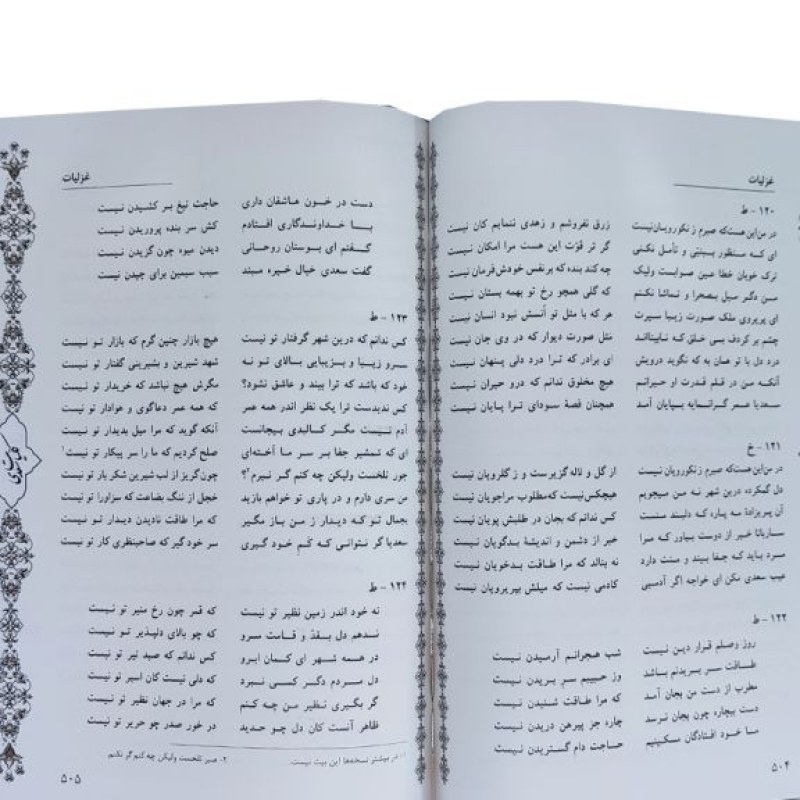 غزلیات
۱۲۰ - ط
در من این هست که صبرم ز نکورویان نیست زرق نفروشم و زهدی ننمایم کان نیست
ای که منظور ببینی و تأمل نکنی گر تو را قوّت این هست مرا امکان نیست
ترک خوبان خطا عین صوابست ولیک چه کند بنده که بر نفس خودش فرمان نیست
من دگر میل بصحرا و تماشا نکنم که گلی همچو رخ تو بهمه بستان نیست
ای پریروی ملک صورت زیبا سیرت هر که با مثل تو اُنسش نبود انسان نیست
چشم بر کرده بسی خلق که نابینااند مثل صورت دیوار که در وی جان نیست
درد دل با تو همان به که نگوید درویش ای برادر که ترا درد دلی پنهان نیست
آنکه من در قلم قدرت او حیرانم هیچ مخلوق ندانم که درو حیران نیست
سعدیا عمر گرانمایه بپایان آمد همچنان قصهٔ سودای ترا پایان نیست
۱۲۱ - خ
در من این هست که صبرم ز نکورویان نیست از گل و لاله گزیرست و ز گلرویان نیست
دل گمکرده درین شهر نه من میجویم هیچکس نیست که مطلوب مراجویان نیست
آن پریزادهٔ مه پاره که دلبند منست کس ندانم که بجان در طلبش پویان نیست
ساربانا خبر از دوست بیاور که مرا خبر از دشمن و اندیشهٔ بدگویان نیست
مرد باید که جفا بیند و منت دارد نه بنالد که مرا طاقت بدخویان نیست
عیب سعدی مکن ای خواجه اگر آدمیی کادمی نیست که میلش بپریرویان نیست
۱۲۲ - ط
روز وصلم قرار دیدن نیست شب هجرانم آرمیدن نیست
طاقت سر بریدنم باشد وز حبیبم سر بریدن نیست
مطرب از دست من بجان آمد که مرا طاقت شنیدن نیست
دست بیچاره چون بجان نرسد چاره جز پیرهن دریدن نیست
ما خود افتادگان مسکینیم حاجت دام گستریدن نیست
۵۰۴
غزلیات
دست در خون عاشقان داری حاجت تیغ بر کشیدن نیست
با خداوندگاری افتادم کش سر بنده پروریدن نیست
گفتم ای بوستان روحانی دیدن میوه چون گزیدن نیست
گفت سعدی خیال خیره مبند سیب سیمین برای چیدن نیست
۱۲۳ - ط
کس ندانم که درین شهر گرفتار تو نیست هیچ بازار چنین گرم که بازار تو نیست
سرو زیبا و بزیبایی بالای تو نه شهد شیرین و بشیرینی گفتار تو نیست
خود که باشد که ترا بیند و عاشق نشود؟ مگرش هیچ نباشد که خریدار تو نیست
کس ندیدست ترا یک نظر اندر همه عمر که همه عمر دعاگوی و هوادار تو نیست
آدمی نیست مگر کالبدی بیجانست آنکه گوید که مرا میل بدیدار تو نیست
ای که شمشیر جفا بر سر ما آخته‌ای صلح کردیم که ما را سر پیکار تو نیست۱
جور تلخست ولیکن چه کنم گر نبرم؟۲ چون گریز از لب شیرین شکر بار تو نیست
من سری دارم و در پای تو خواهم بازید خجل از ننگ بضاعت که سزاوار تو نیست
بجمال تو که دیدار ز من باز مگیر که مرا طاقت نادیدن دیدار تو نیست
سعدیا گر نتوانی که کم خود گیری سر خود گیر که صاحبنظری کار تو نیست
۱۲۴ - ط
نه خود اندر زمین نظیر تو نیست که قمر چون رخ منیر تو نیست
ندهم دل بقدّ و قامت سرو که چو بالای دلپذیر تو نیست
در همه شهر ای کمان ابرو کس ندانم که صید تیر تو نیست
دل مردم دگر کسی نبرد که دلی نیست کان اسیر تو نیست
گر بگیری نظیر من چه کنم که مرا در جهان نظیر تو نیست
ظاهر آنست کان دل چو حدید در خور صدر چو حریر تو نیست
۱- در بیشتر نسخه‌ها این بیت نیست. ۲- صبر تلخست ولیکن چه کنم گر نکنم
۵۰۵